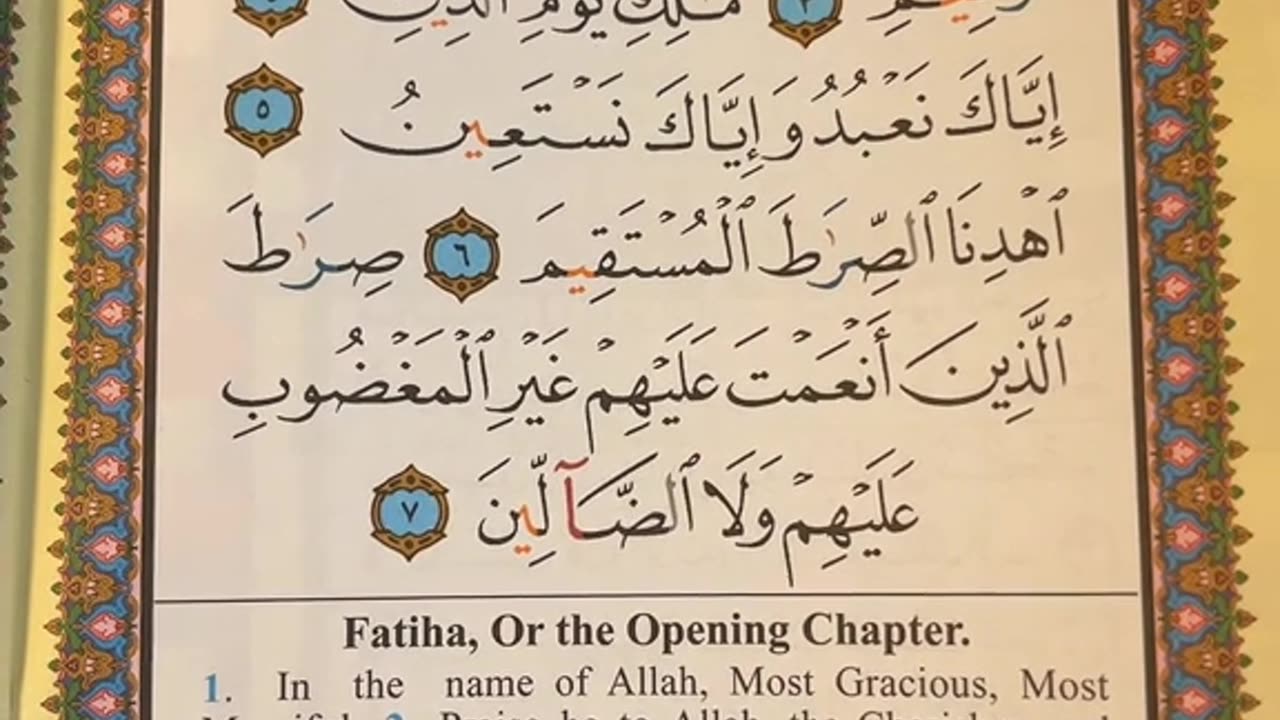 ٱلرَّحِيمِ ٣ مَٰلِكِ يَوْمِ ٱلدِّينِ ٤
إِيَّاكَ نَعْبُدُ وَإِيَّاكَ نَسْتَعِينُ ٥
ٱهْدِنَا ٱلصِّرَٰطَ ٱلْمُسْتَقِيمَ ٦ صِرَٰطَ
ٱلَّذِينَ أَنْعَمْتَ عَلَيْهِمْ غَيْرِ ٱلْمَغْضُوبِ
عَلَيْهِمْ وَلَا ٱلضَّآلِّينَ ٧
Fatiha, Or the Opening Chapter.
1. In the name of Allah, Most Gracious, Most
2. Praise be to Allah, the